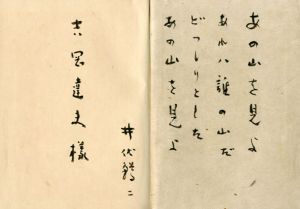 あの山を見よ
あれハ誰の山だ
どつしりとした
あの山を見よ
井伏鱒二
吉岡達夫様